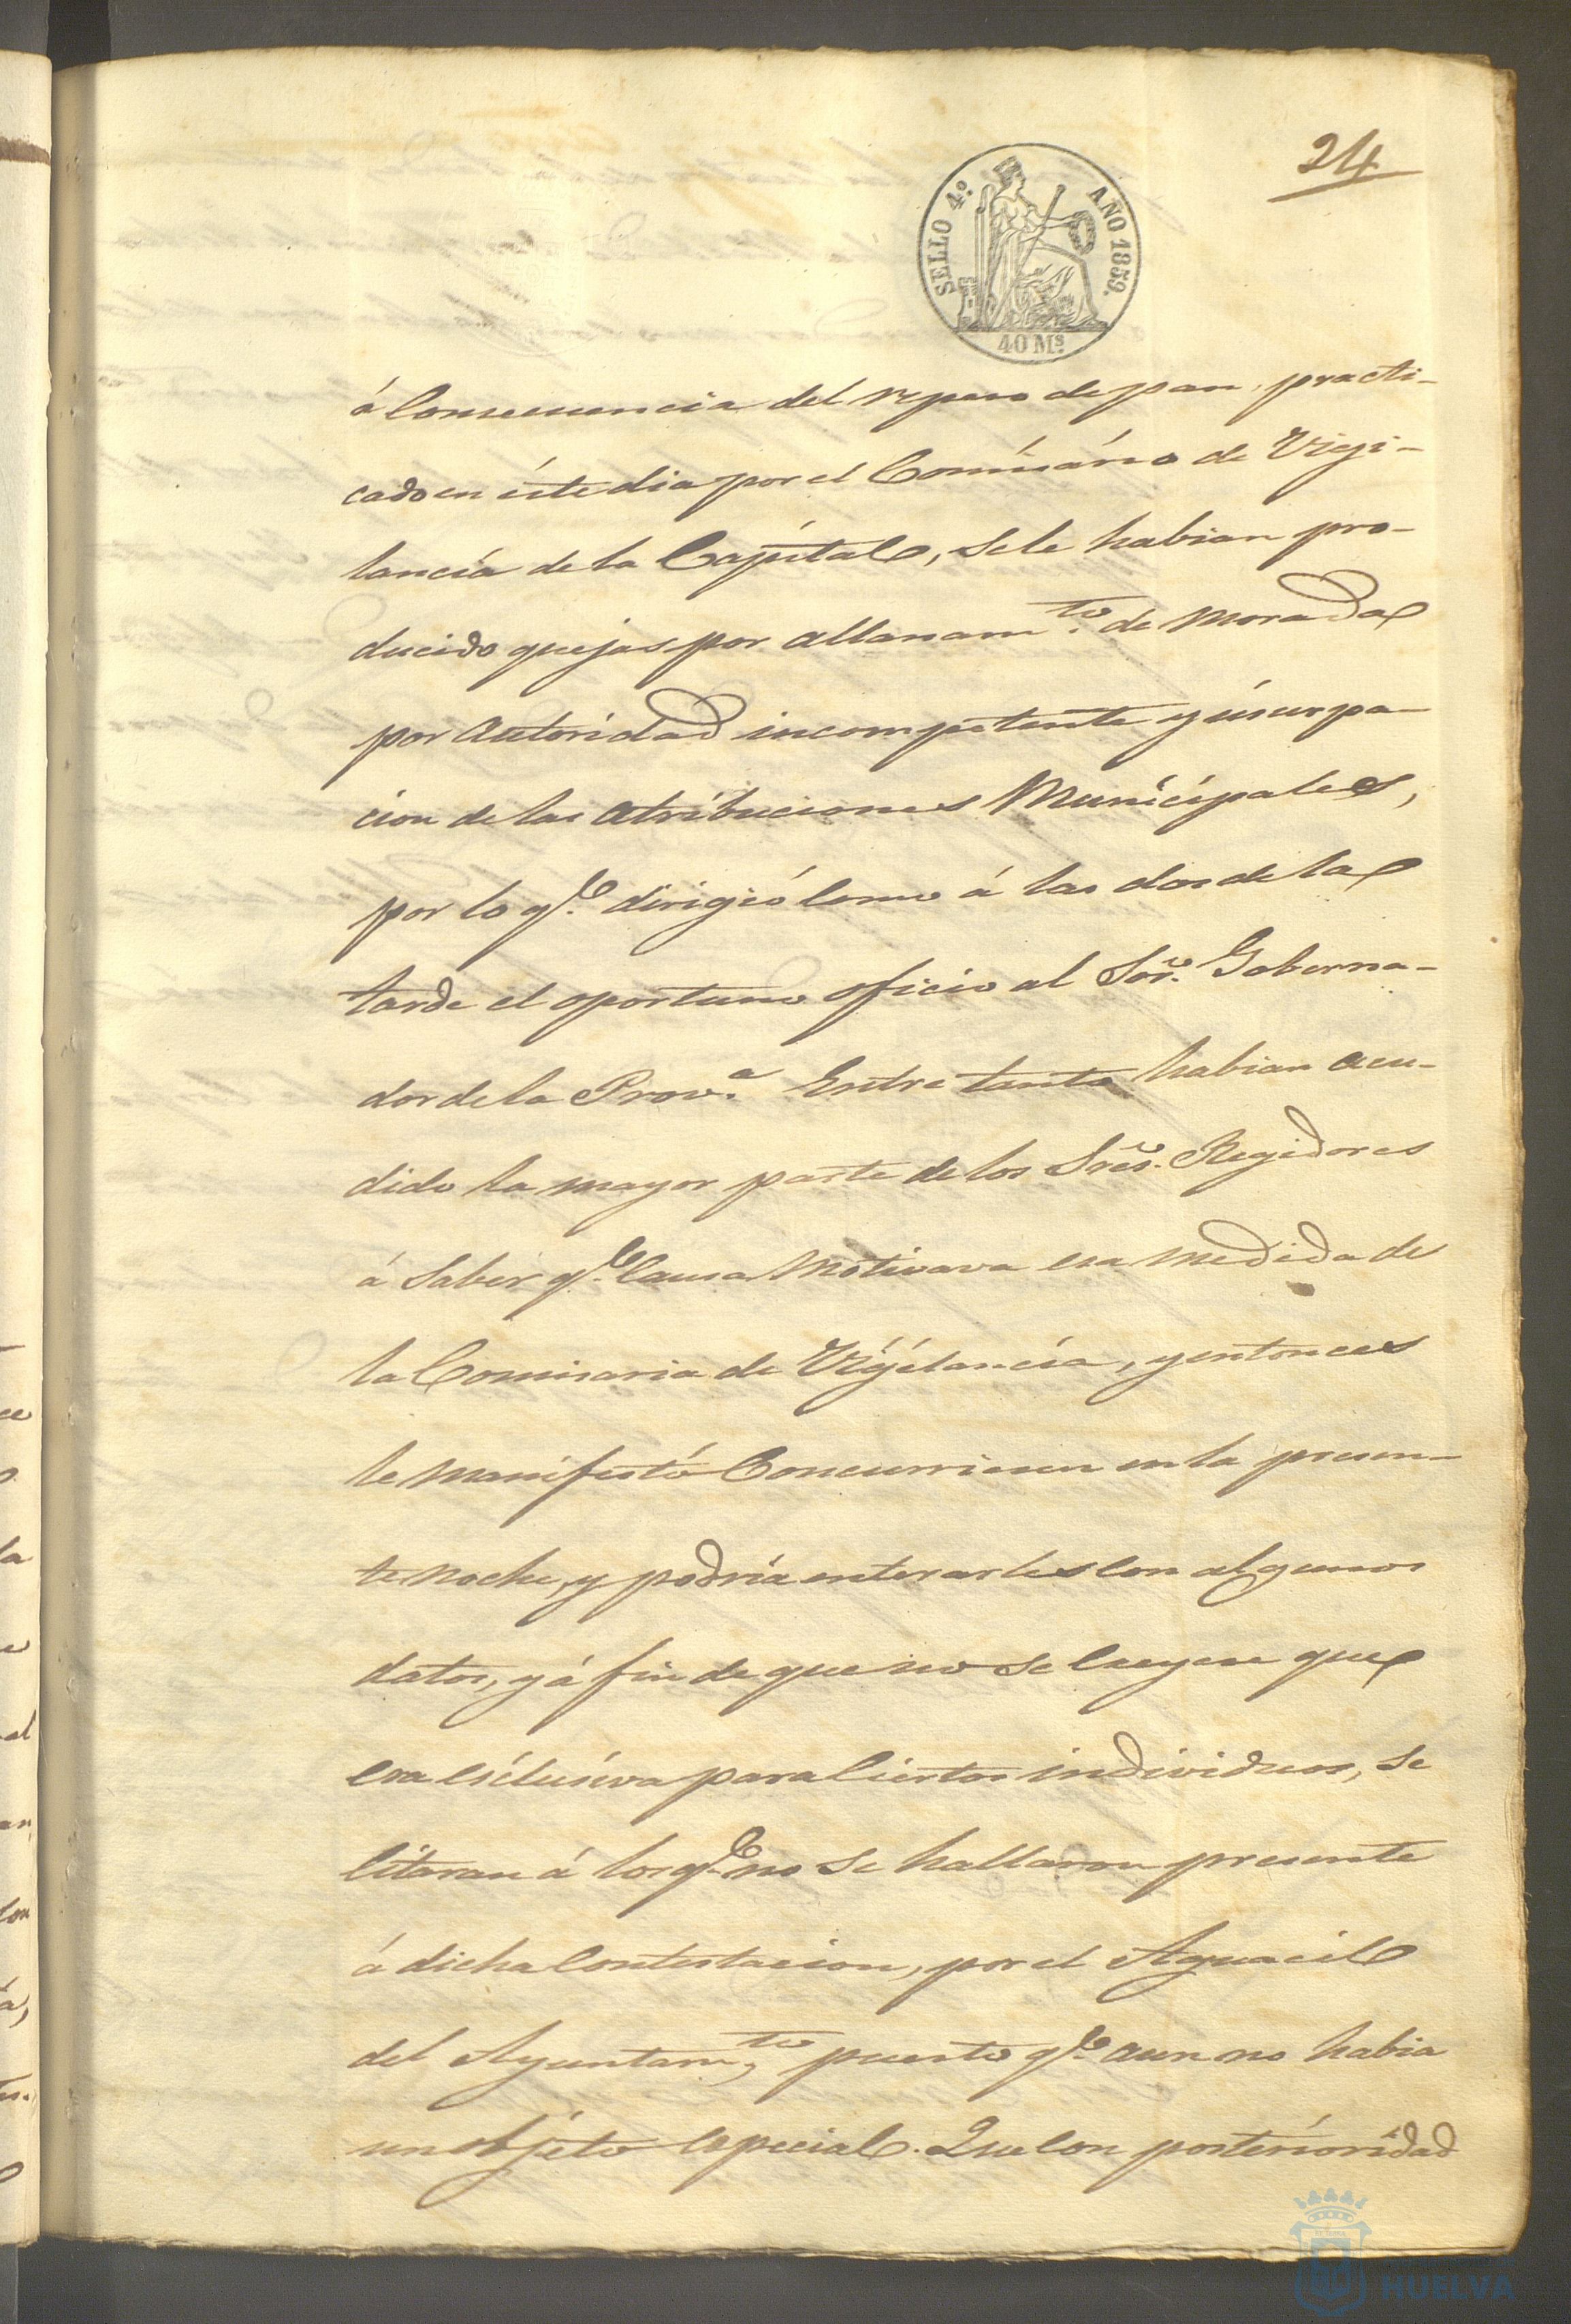 24
SELLO 4º AÑO 1859.
40 Ms.
á Consecuencia del repeso de pan, practi-
cado en éste dia por el Comisário de Vigi-
lancia de la Capital, se le habian pro-
ducido quejas por allanam.to de morada
por autoridad incompetente y úsurpa-
cion de las atribuciones Municipales,
por lo q.e dirigió como á las dos de la
tarde el oportuno oficio al Sor. Goberna-
dor de la Prov.a Entre tanto habian acu-
dido la mayor parte de los Sres. Regidores
á saber q.e causa motivava esa medida de
la Comisaria de Vigilancia, y entonces
le manifestó Concurriesen en la presen-
te noche, y podria enterarles con algunos
datos, y á fin de que no se creyese que
era esclusiva para Ciertos individuos, se
citaran á los q.e no se hallaron presente
á dicha Contestacion, por el Aguacil
del Ayuntam.to, puesto q.e aun no habia
un objeto especial. Que con posterioridad
HUELVA